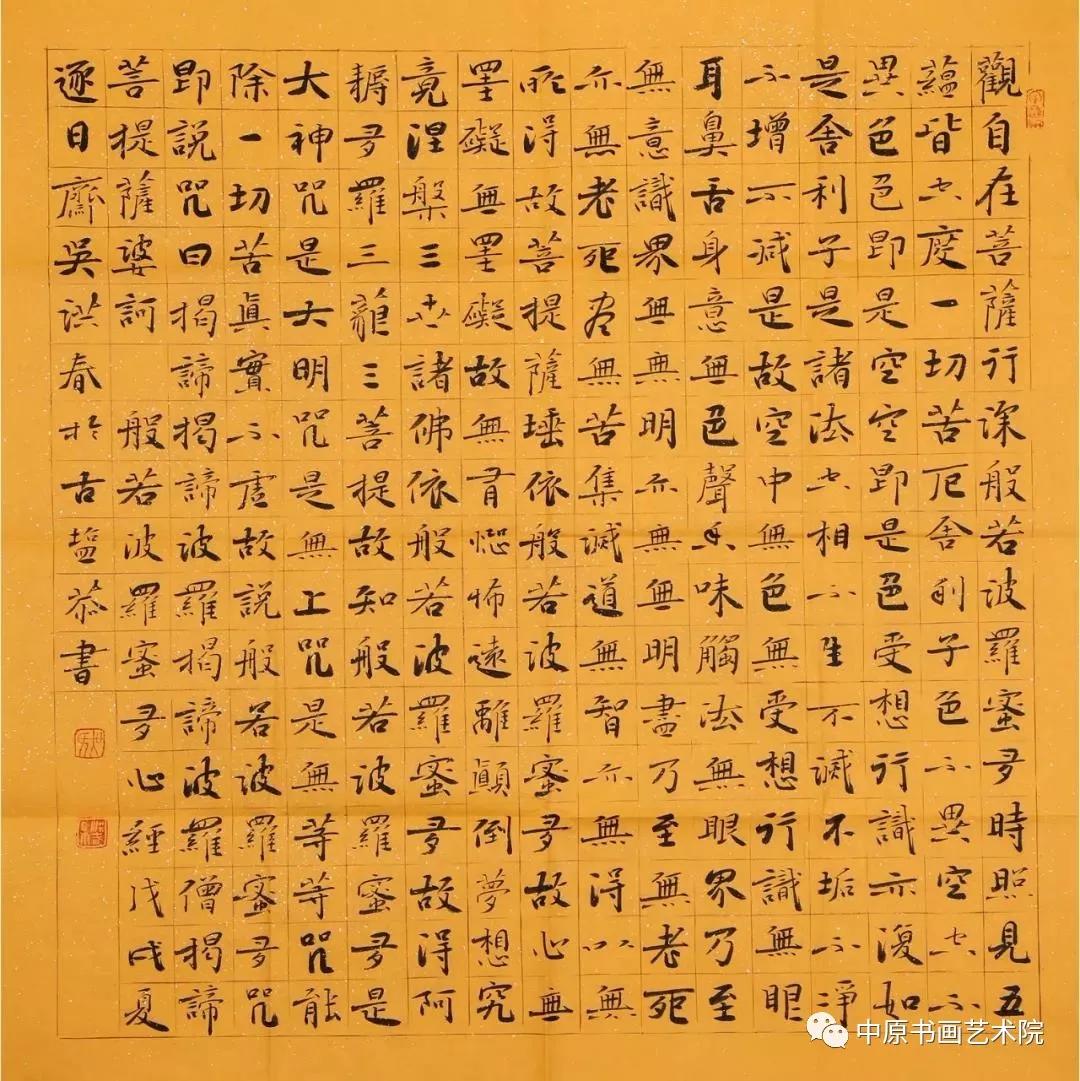 觀自在菩薩行深般若波羅蜜多時照見五
蘊皆空度一切苦厄舍利子色不異空空不
異色色即是空空即是色受想行識亦復如
是舍利子是諸法空相不生不滅不垢不淨
不增不減是故空中無色無受想行識無眼
耳鼻舌身意無色聲香味觸法無眼界乃至
無意識界無無明亦無無明盡乃至無老死
亦無老死盡無苦集滅道無智亦無得以無
所得故菩提薩埵依般若波羅蜜多故心無
罣礙無罣礙故無有恐怖遠離顛倒夢想究
竟涅槃三世諸佛依般若波羅蜜多故得阿
耨多羅三藐三菩提故知般若波羅蜜多是
大神咒是大明咒是無上咒是無等等咒能
除一切苦眞實不虛故說般若波羅蜜多咒
即說咒曰揭諦揭諦波羅揭諦波羅僧揭諦
菩提薩婆訶 般若波羅蜜多心經戊戌夏
逐日齋吳洪春於古塩恭書
中原书画艺术院